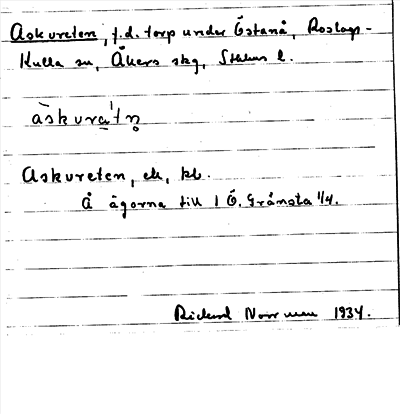 Askvreten, f.d. torp under Östanå, Roslags-
Kulla sn, Åkers skg, Sthlms l.
àskvra`tn̥
Askvreten, ek, kb.
Å ägorna till 1 Ö. Gränsta 1/4.
Rickard Norrman 1934.